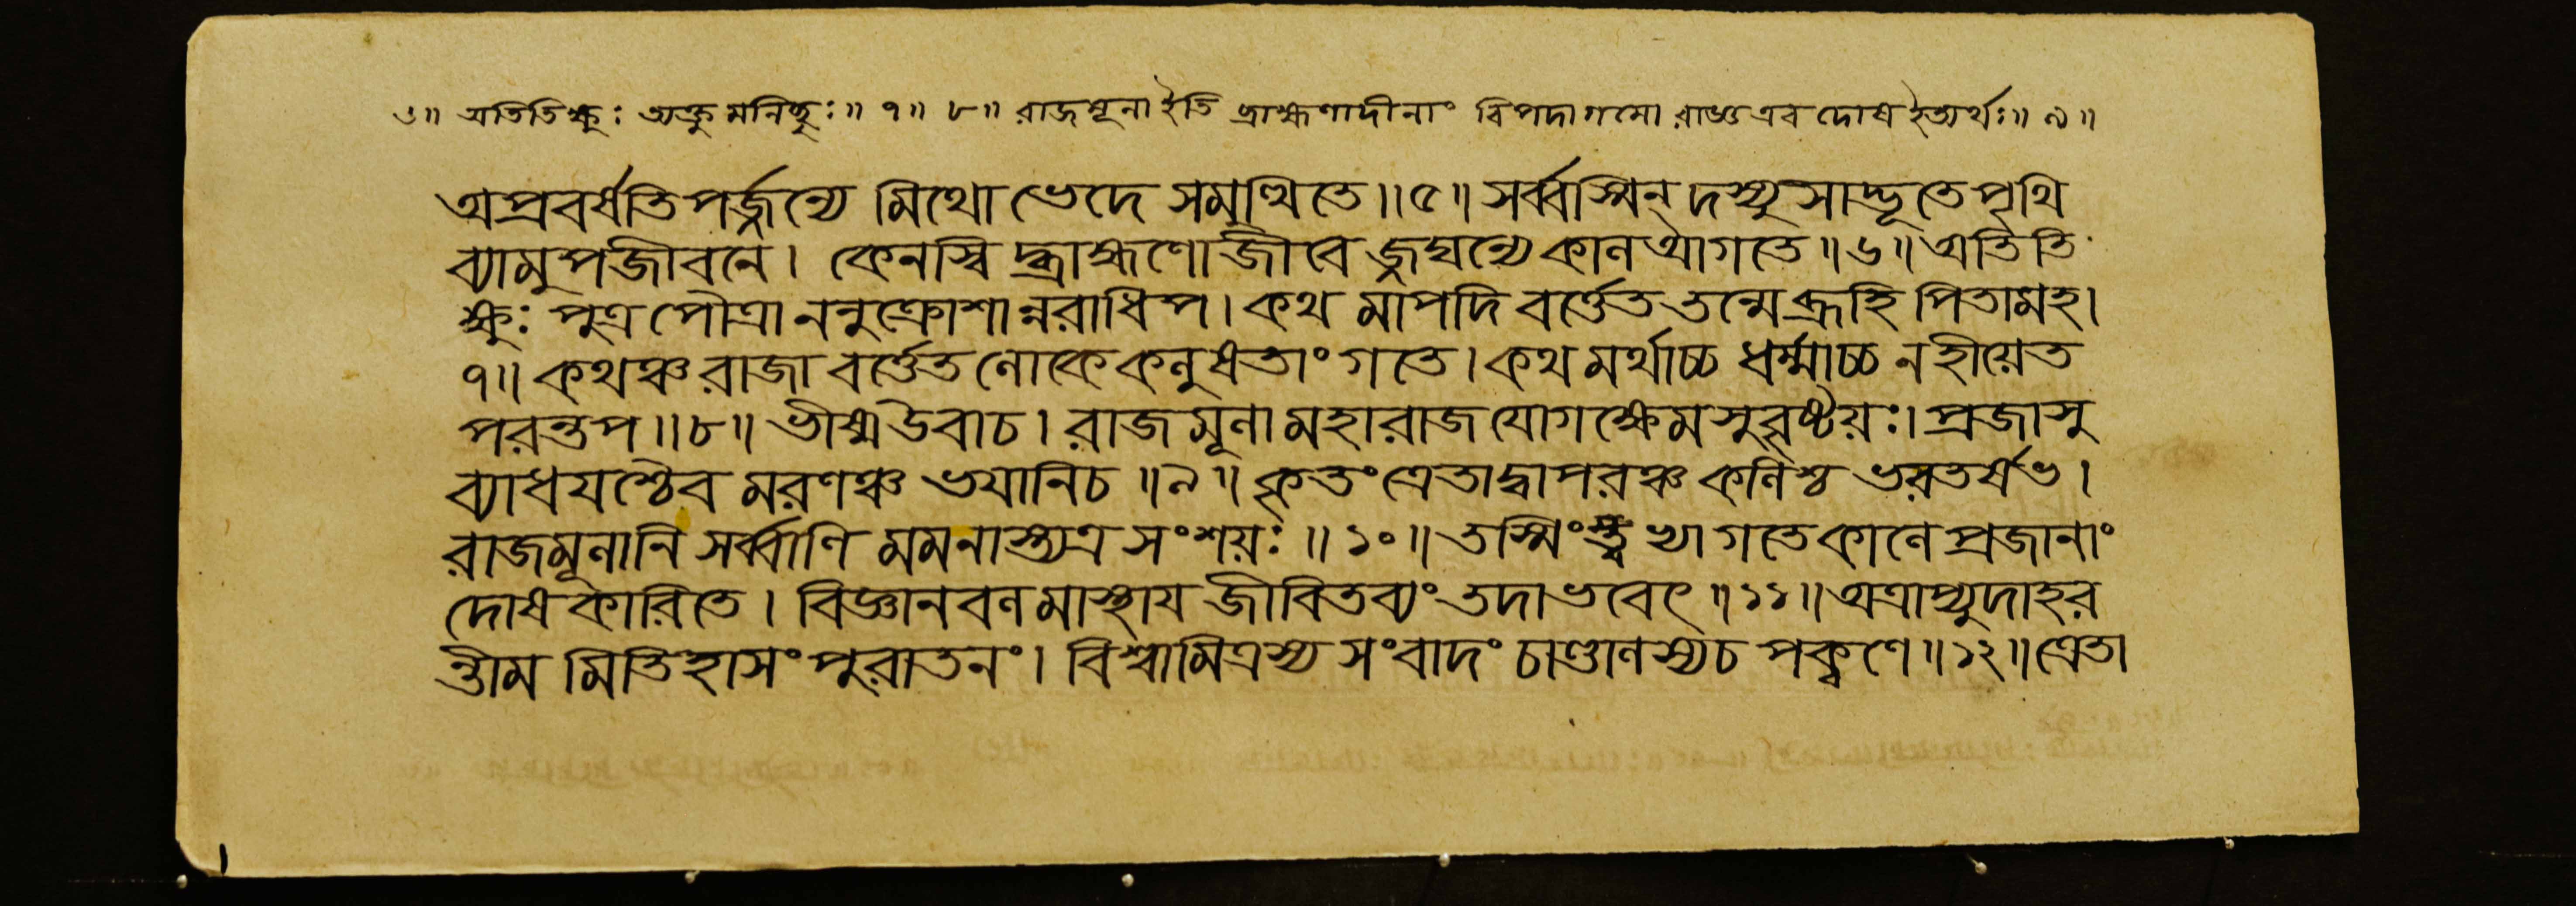 ৬॥ অতিতিক্ষুঃ অত্যক্তুমনিচ্ছুঃ॥ ৭॥ ৮॥ রাজমূলা ইতি ব্রাহ্মণাদীনাং বিপদাগমো রাজ্ঞএব দোষ ইত্যর্থঃ॥ ৯॥
অপ্রবর্ষতি পর্জ্জন্যে মিথো ভেদে সমুত্থিতে॥৫॥ সর্ব্বস্মিন্ দস্যুসাদ্ভূতে পৃথি
ব্যামুপজীবনে। কেনস্বিদ্ব্রাহ্মণোজীবেজ্জঘন্যেকালআগতে॥৬॥ অতিতি
ক্ষুঃ পুত্রপৌত্রাননুক্রোশান্নরাধিপ। কথমাপদি বর্ত্তেত তন্মেব্রূহি পিতামহ॥
৭॥ কথঞ্চ রাজা বর্ত্তেত লোকে কলুষতাং গতে। কথমর্থাচ্চ ধর্ম্মাচ্চ নহীয়েত
পরন্তপ॥৮॥ ভীষ্মউবাচ। রাজমূলা মহারাজ যোগক্ষেমসুবৃষ্টয়ঃ। প্রজাসু
ব্যাধয়শ্চৈব মরণঞ্চ ভয়ানিচ॥৯॥ কৃতং ত্রেতাদ্বাপরঞ্চ কলিশ্চ ভরতর্ষভ।
রাজমূলানি সর্ব্বাণি মমনাস্ত্যত্র সংশয়ঃ॥১০॥ তস্মিংস্ত্বভ্যাগতেকালে প্রজানাং
দোষকারিতে। বিজ্ঞানবলমাস্থায় জীবিতব্যং তদাভবেৎ॥১১॥ অত্রাপ্যুদাহর
ন্তীমমিতিহাসং পুরাতনং। বিশ্বামিত্রস্য সংবাদং চাণ্ডালস্যচ পক্কণে॥১২॥ ত্রেতা